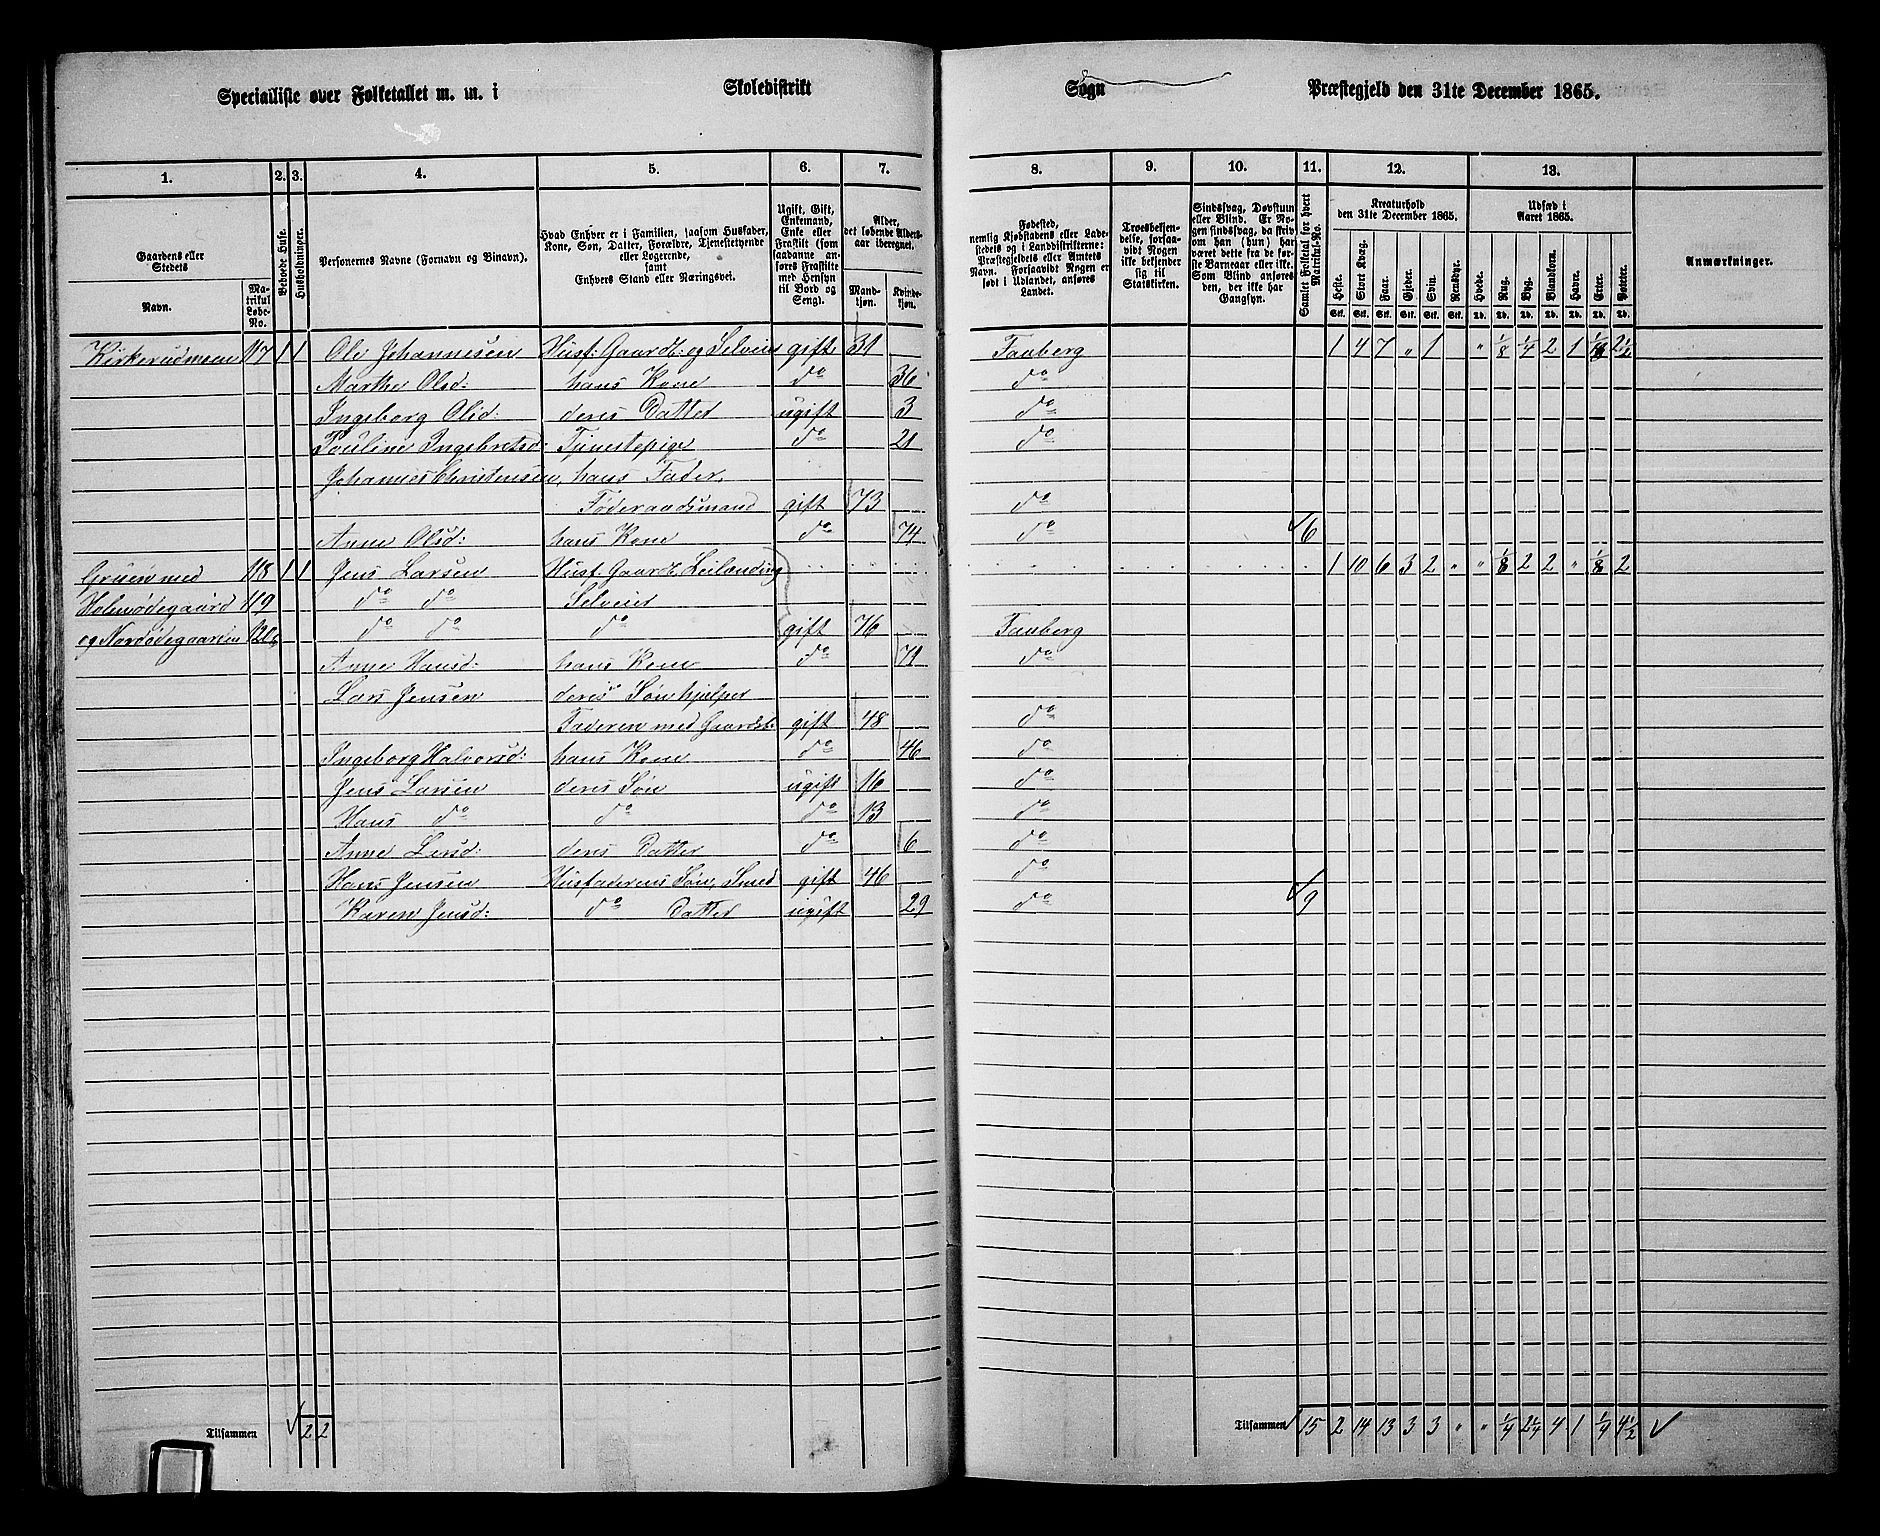 Specialliste over Folketallet m. m. i Skoledistrikt Sogn Præstegjeld den 31te December 1865.
1. 2. 3. 4. 5. 6. 7. 8. 9. 10. 11. 12. 13.
Gaardens eller Stedets
Navn.
Matrikul Løbe-No.
Beboede Huse.
Husholdninger.
Personernes Navne (Fornavn og Binavn).
Hvad Enhver er i Familien, saasom Husfader, Kone, Søn, Datter, Forældre, Tjenestetyende eller Logerende, samt Enhvers Stand eller Næringsvei.
Ugift, Gift, Enkemand, Enke eller Fraskilt (som saadanne anføres Fraskilte med Hensyn til Bord og Seng).
Alder, det løbende Aldersaar iberegnet.
Mandkjøn. Kvindekjøn.
Fødested, nemlig Kjøbstadens eller Ladestedets og i Landdistrikterne: Præstegjeldets eller Amtets Navn. Forsaavidt Nogen er født i Udlandet, anføres Landet.
Troesbekjendelse, forsaavidt Nogen ikke bekjender sig til Statskirken.
Sindssvag, Døvstum eller Blind. Er Nogen sindssvag, da skriv om han (hun) har været dette fra de første Barneaar eller ikke. Som Blind anføres den, der ikke har Gangsyn.
Samlet Folketal for hvert Matrikul-No.
Kreaturhold den 31te December 1865.
Heste. Stort Kvæg. Faar. Gjeder. Svin. Rensdyr.
Udsæd i Aaret 1865.
Hvede. Rug. Byg. Blandkorn. Havre. Erter. Poteter.
Stk. Stk. Stk. Stk. Stk. Stk. Td. Td. Td. Td. Td. Td. Td.
Anmærkninger.
Kirkerudmoen 117 1 1 Ole Johannesen Husf: Gaardb: og Selveier gift 31 Faaberg 1 4 7 " 1 " 1/8 1/4 2 1 1/8 2 1/2
Marthe Olsd: hans Kone do 36 do
Ingeborg Olsd: deres Datter ugift 3 do
Pauline Ingebretsd: Tjenestepige do 21 do
Johannes Christensen, hans Fader,
Føderaadsmand gift 73 do
Anne Olsd: hans Kone do 74 do 6
Gruen med 118 1 1 Jens Larsen Husf: Gaardb, Leilænding 1 10 6 3 2 " " 1/8 2 2 " 1/8 2
Holmødegaard 119 do do Selveier
og Nordødegaarden 120 do do do gift 76 Faaberg
Anne Hansd: hans Kone do 71 do
Lars Jensen deres Søn hjelper
Faderen med Gaardsb: gift 48 do
Ingeborg Halvorsd: hans Kone do 46 do
Jens Larsen deres Søn ugift 16 do
Hans do do do 13 do
Anne Larsd: deres Datter do 6 do
Hans Jensen Husfaderens Søn, Smed gift 46 do
Karen Jensd: do Datter ugift 29 do 9
Tilsammen 2 2 Tilsammen 15 2 14 13 3 3 " " 1/4 2 1/4 4 1 1/4 4 1/2